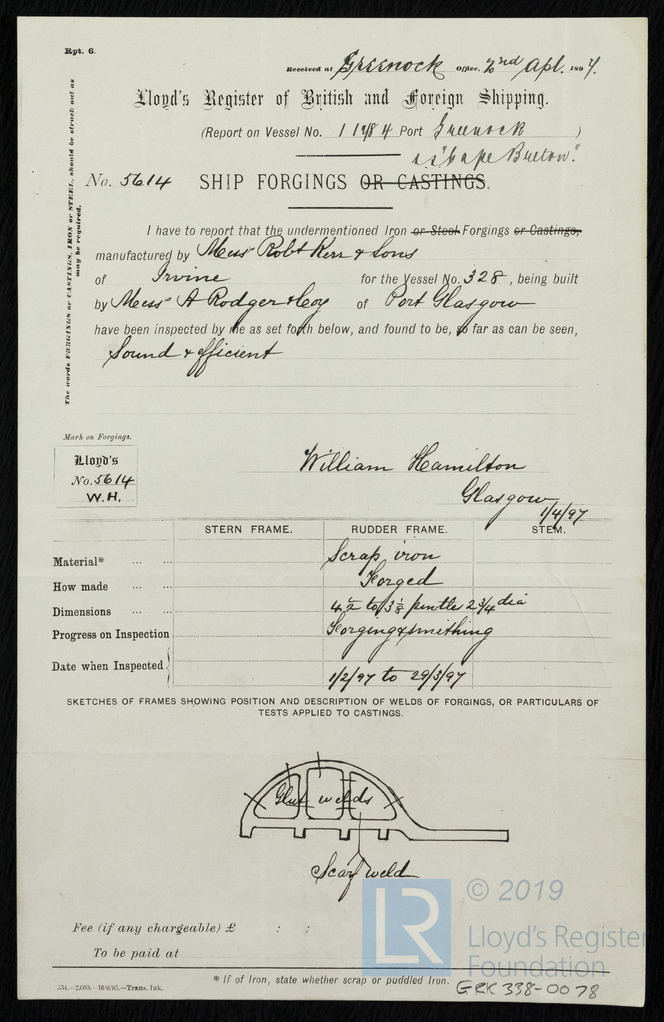 Rpt. 6.
Received at Greenock Office, 2nd Apl. 1897.
Lloyd's Register of British and Foreign Shipping.
(Report on Vessel No. 11484 Port Greenock )
"Cape Breton".
No. 5614 SHIP FORGINGS OR CASTINGS.
The words FORGINGS or CASTINGS, IRON or STEEL, should be struck out as
may be required.
I have to report that the undermentioned Iron or Steel Forgings or Castings,
manufactured by Messrs Robt Kerr & Sons
of Irvine for the Vessel No. 328, being built
by Messrs A Rodger & Coy of Port Glasgow
have been inspected by me as set forth below, and found to be, so far as can be seen,
Sound & efficient
Mark on Forgings.
Lloyd's
No. 5614
W.H.
William Hamilton
Glasgow
1/4/97
STERN FRAME. RUDDER FRAME. STEM.
Material* ... ... Scrap iron
How made ... ... Forged
Dimensions ... ... 4½ to 3⅛ pintle 2¾ dia
Progress on Inspection Forging & smithing
Date when Inspected 1/2/97 to 29/3/97
SKETCHES OF FRAMES SHOWING POSITION AND DESCRIPTION OF WELDS OF FORGINGS, OR PARTICULARS OF
TESTS APPLIED TO CASTINGS.
Glut welds
Scarf weld
Fee (if any chargeable) £ : :
To be paid at
* If of Iron, state whether scrap or puddled Iron.
GRK 338-0078
LR
© 2019
Lloyd's Register
Foundation